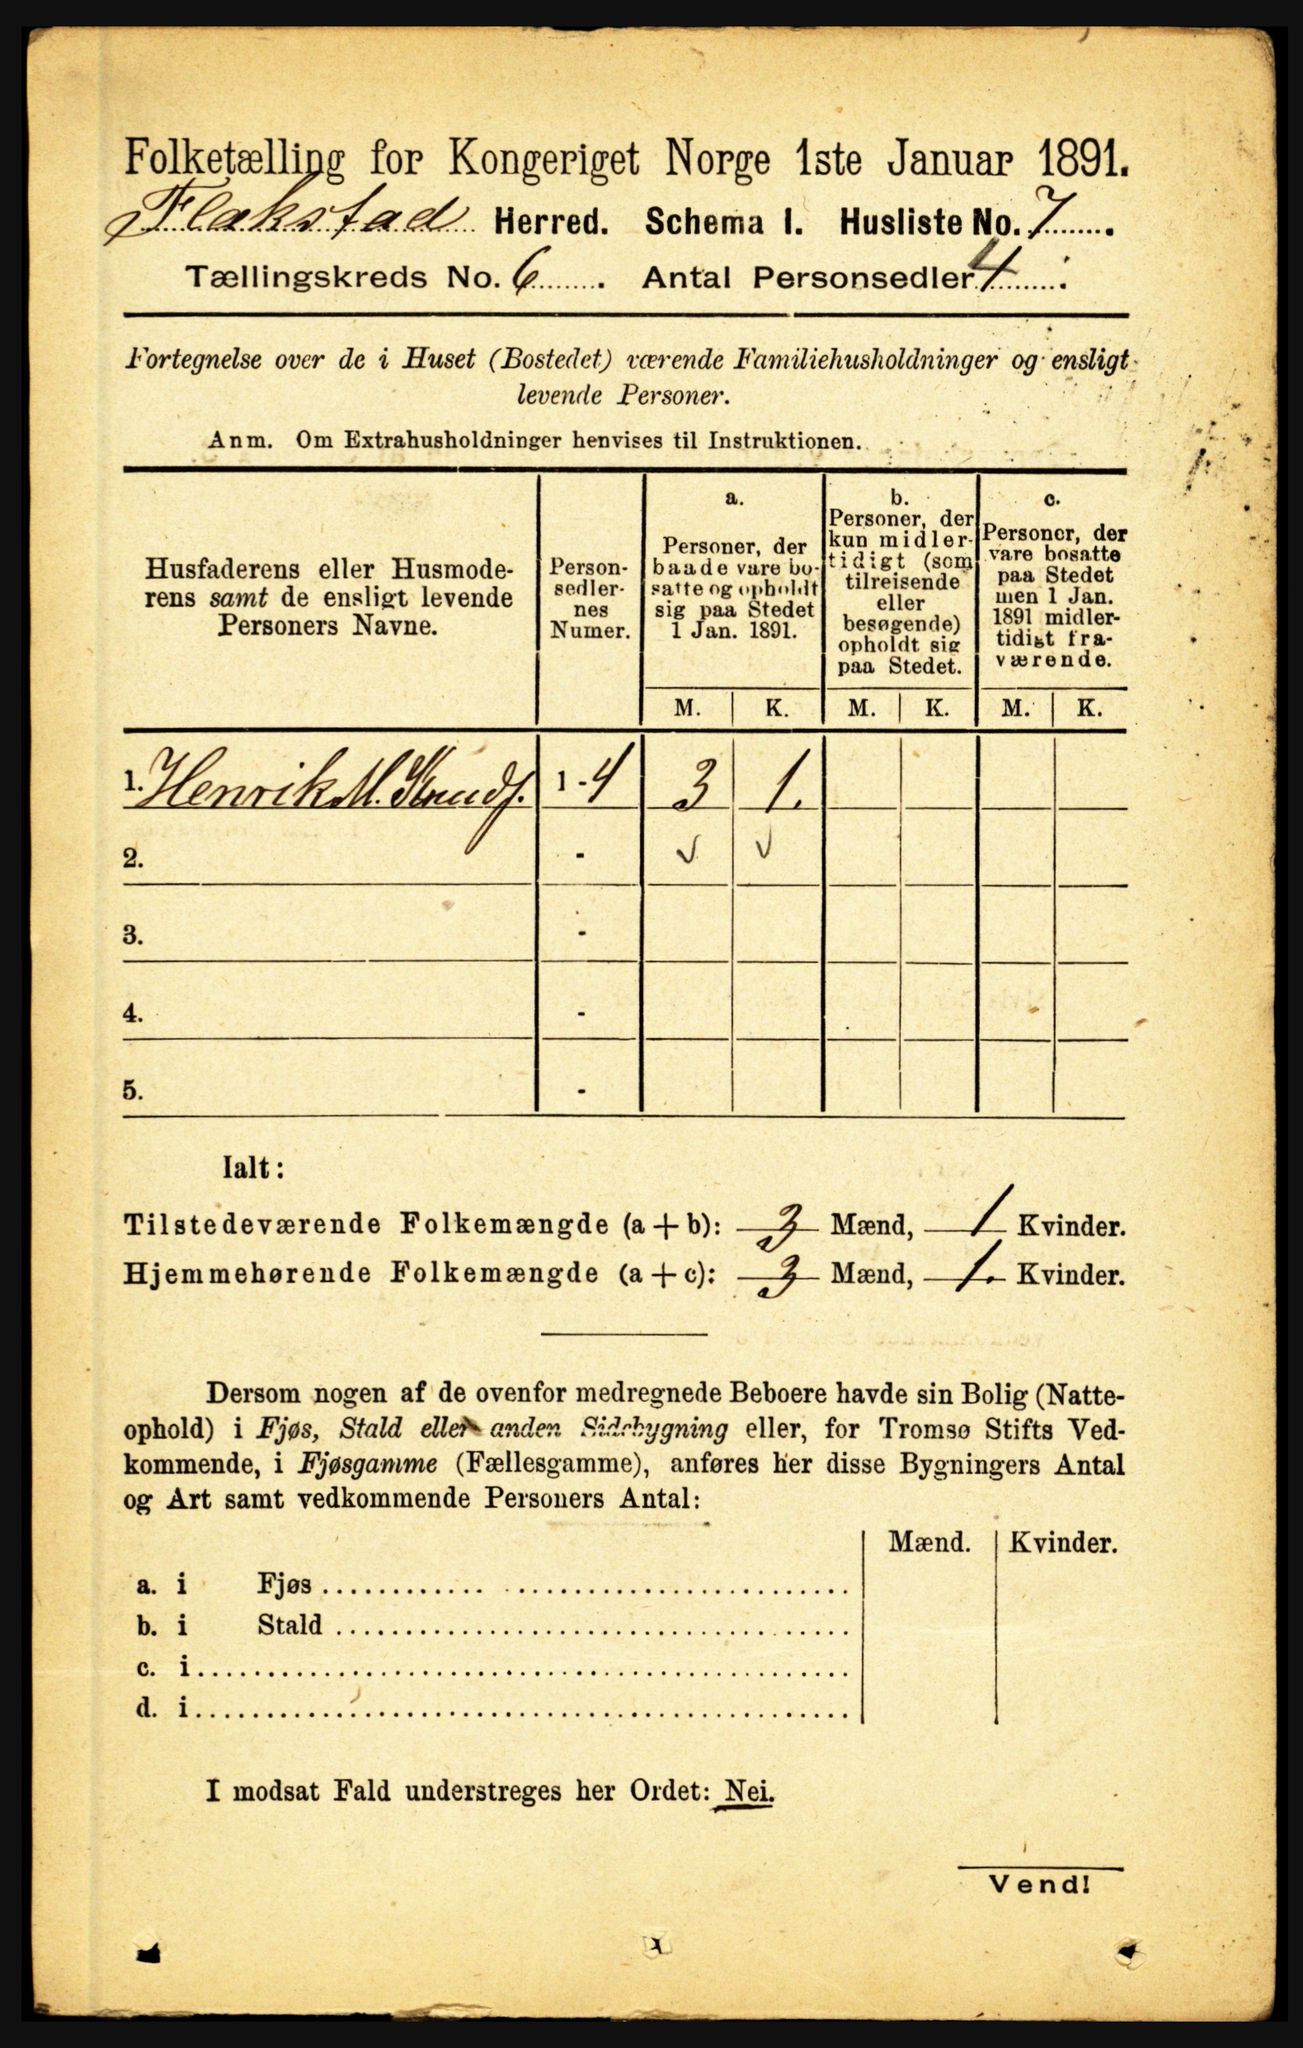 Folketælling for Kongeriget Norge 1ste Januar 1891.
Flakstad Herred. Schema I. Husliste No. 7.
Tællingskreds No. 6. Antal Personsedler 4.
Fortegnelse over de i Huset (Bostedet) værende Familiehusholdninger og ensligt
levende Personer.
Anm. Om Extrahusholdninger henvises til Instruktionen.
Husfaderens eller Husmode-
rens samt de ensligt levende
Personers Navne.
Person-
sedler-
nes
Numer.
a.
Personer, der
baade vare bo-
satte og opholdt
sig paa Stedet
1 Jan. 1891.
b.
Personer, der
kun midler-
tidigt (som
tilreisende
eller
besøgende)
opholdt sig
paa Stedet.
c.
Personer, der
vare bosatte
paa Stedet
men 1 Jan.
1891 midler-
tidigt fra-
værende.
M. K. M. K. M. K.
1. Henrik M. Knuds. 1 - 4 3 1.
2. - √ √
3. -
4. -
5. -
Ialt:
Tilstedeværende Folkemængde (a + b): 3 Mænd, 1 Kvinder.
Hjemmehørende Folkemængde (a + c): 3 Mænd, 1. Kvinder.
Dersom nogen af de ovenfor medregnede Beboere havde sin Bolig (Natte-
ophold) i Fjøs, Stald eller anden Sidebygning eller, for Tromsø Stifts Ved-
kommende, i Fjøsgamme (Fællesgamme), anføres her disse Bygningers Antal
og Art samt vedkommende Personers Antal:
Mænd. Kvinder.
a. i Fjøs
b. i Stald
c. i
d. i
I modsat Fald understreges her Ordet: Nei.
Vend!